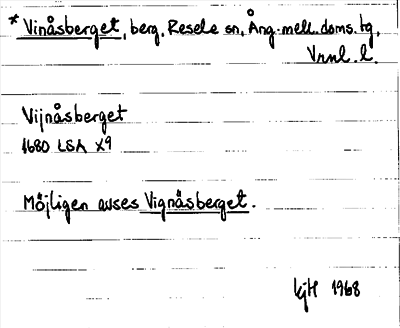 * Vinåsberget, berg, Resele sn, Ång. mell. doms. tg,
Vrnl. l.
Vijnåsberget
1680 LSA X9
Möjligen avses Vignåsberget.
KjH 1968